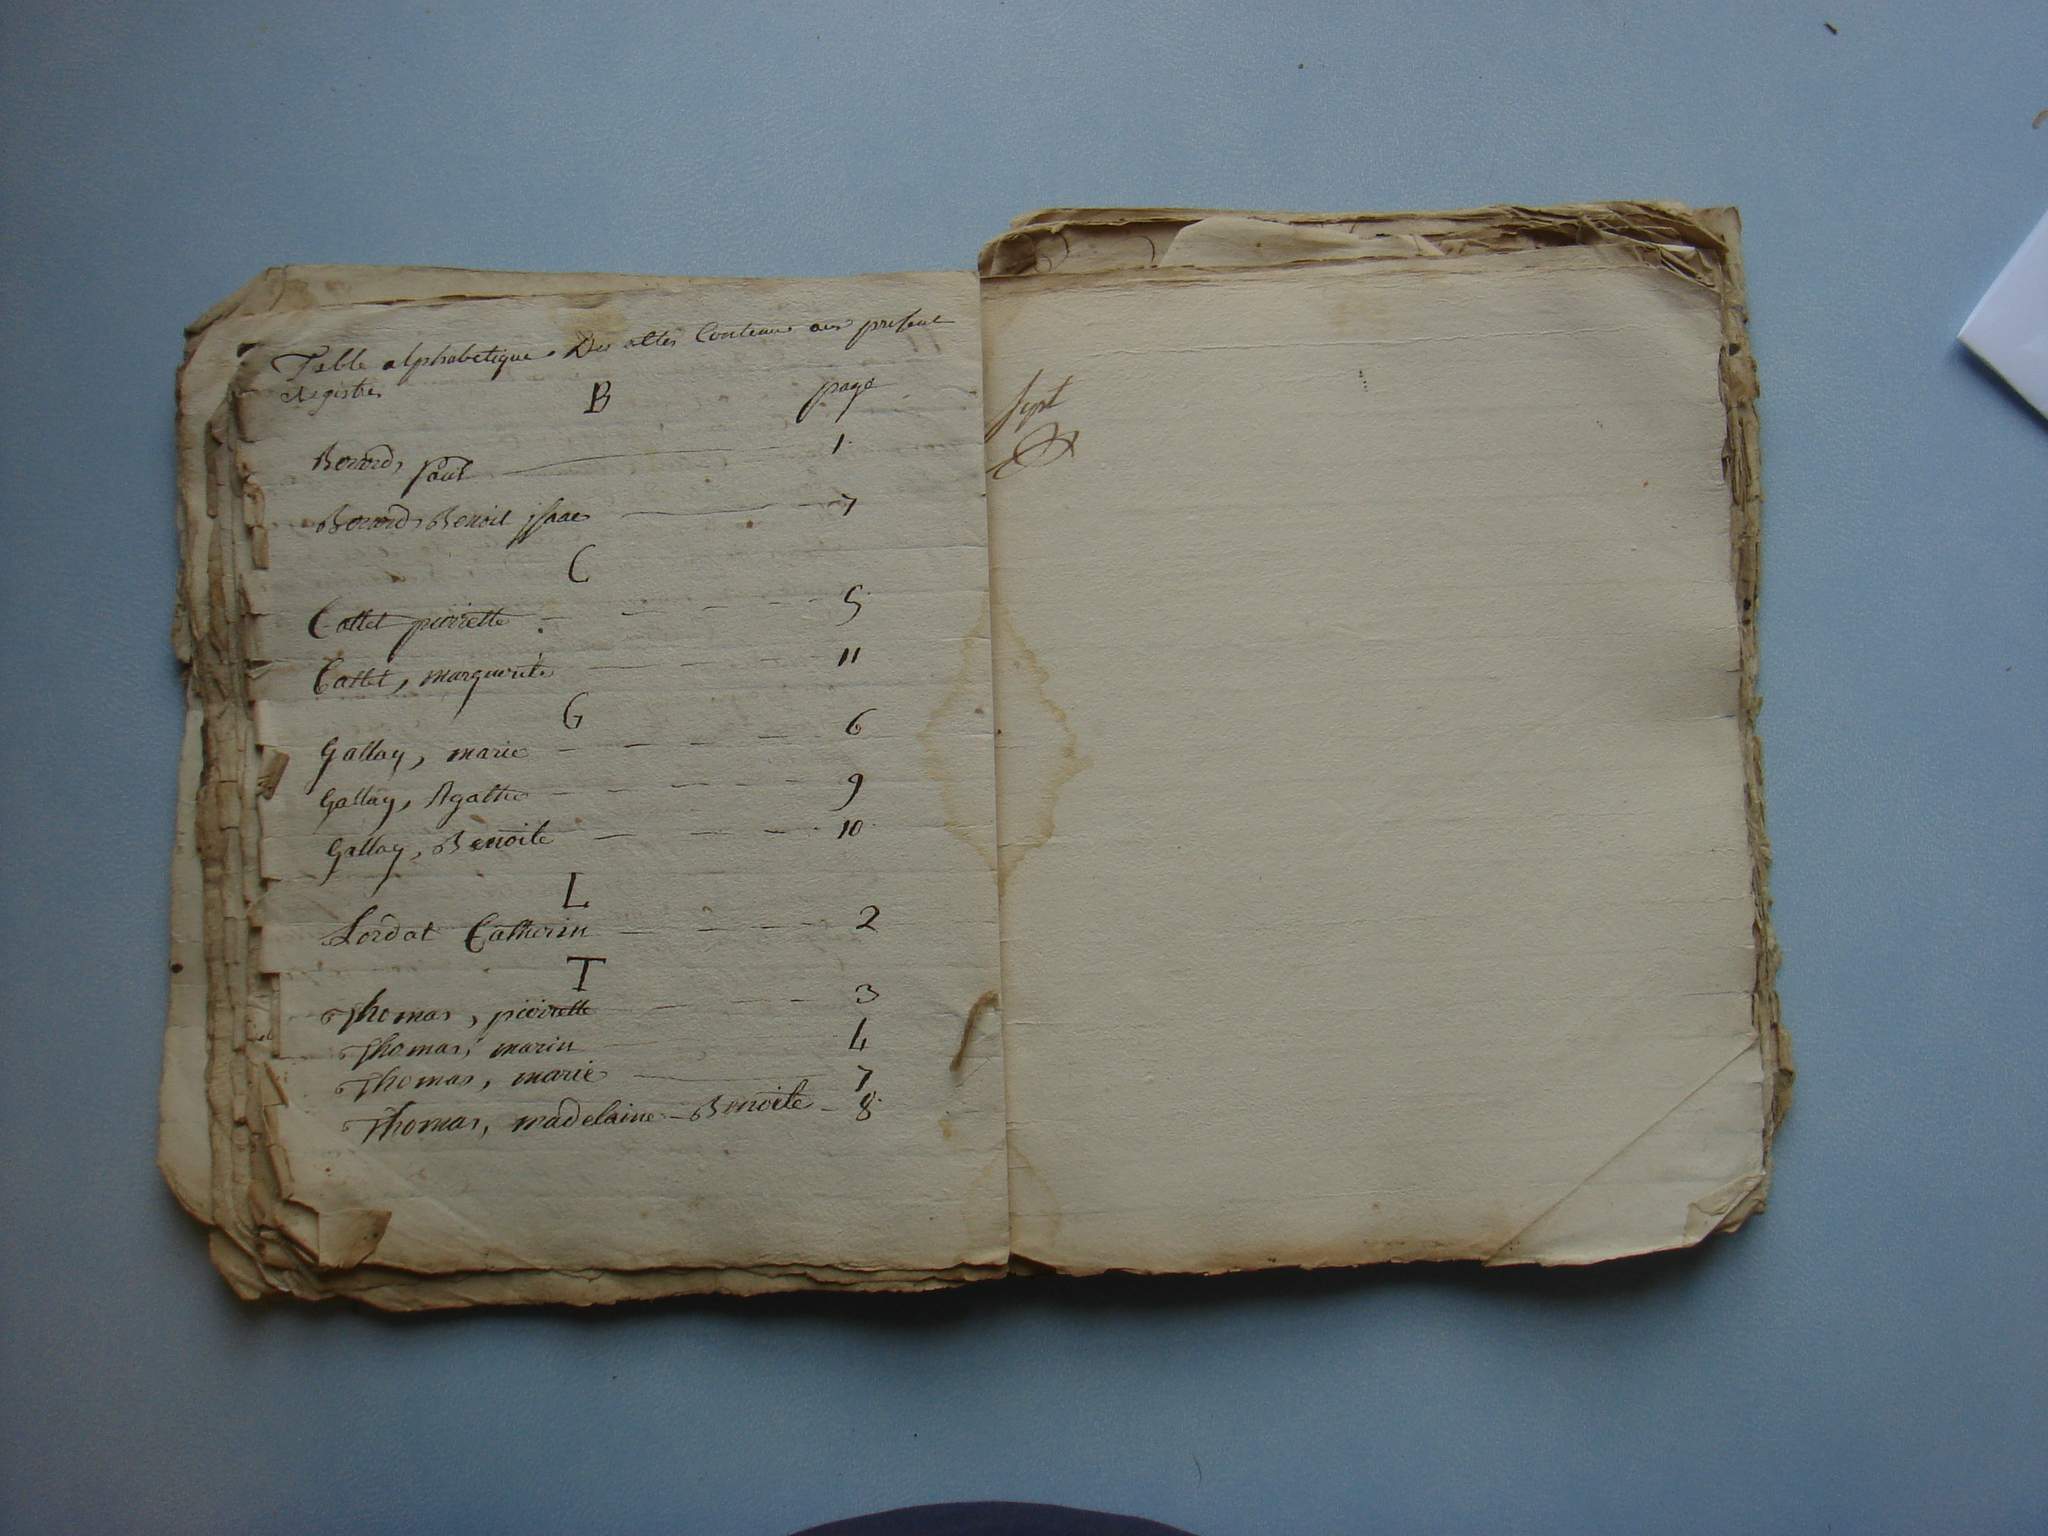 Table alphabetique Des actes Contenus au present
Registre
B page
Borond, Paul 1
Borond, Benoit jsaac 7
C
Collet pierrette 5
Collet, marguerite 11
G
Gallay, marie 6
Gallay, Agathe 9
Gallay, Benoite 10
L
Lordat Catherin 2
T
Thomas, pierrette 3
Thomas, marin 4
Thomas, marie 7
Thomas, madelaine Benoite 8
sept